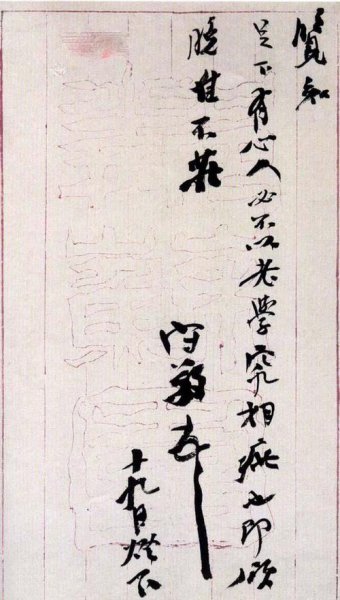 覽知
足下有心人必不以老學究相疵也即頌
佳不莊
守敬
十九日燈下